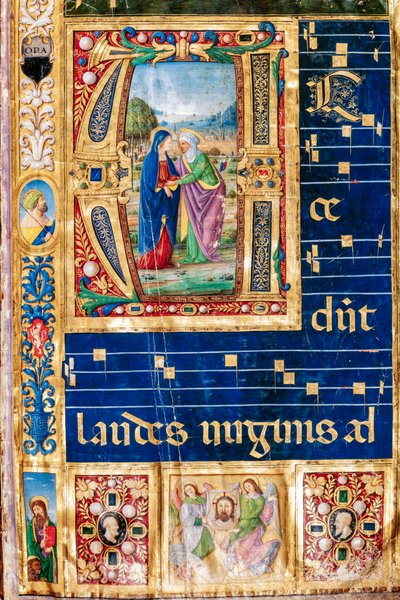 ORA
A C
ce
dūt
laudes virginis ad